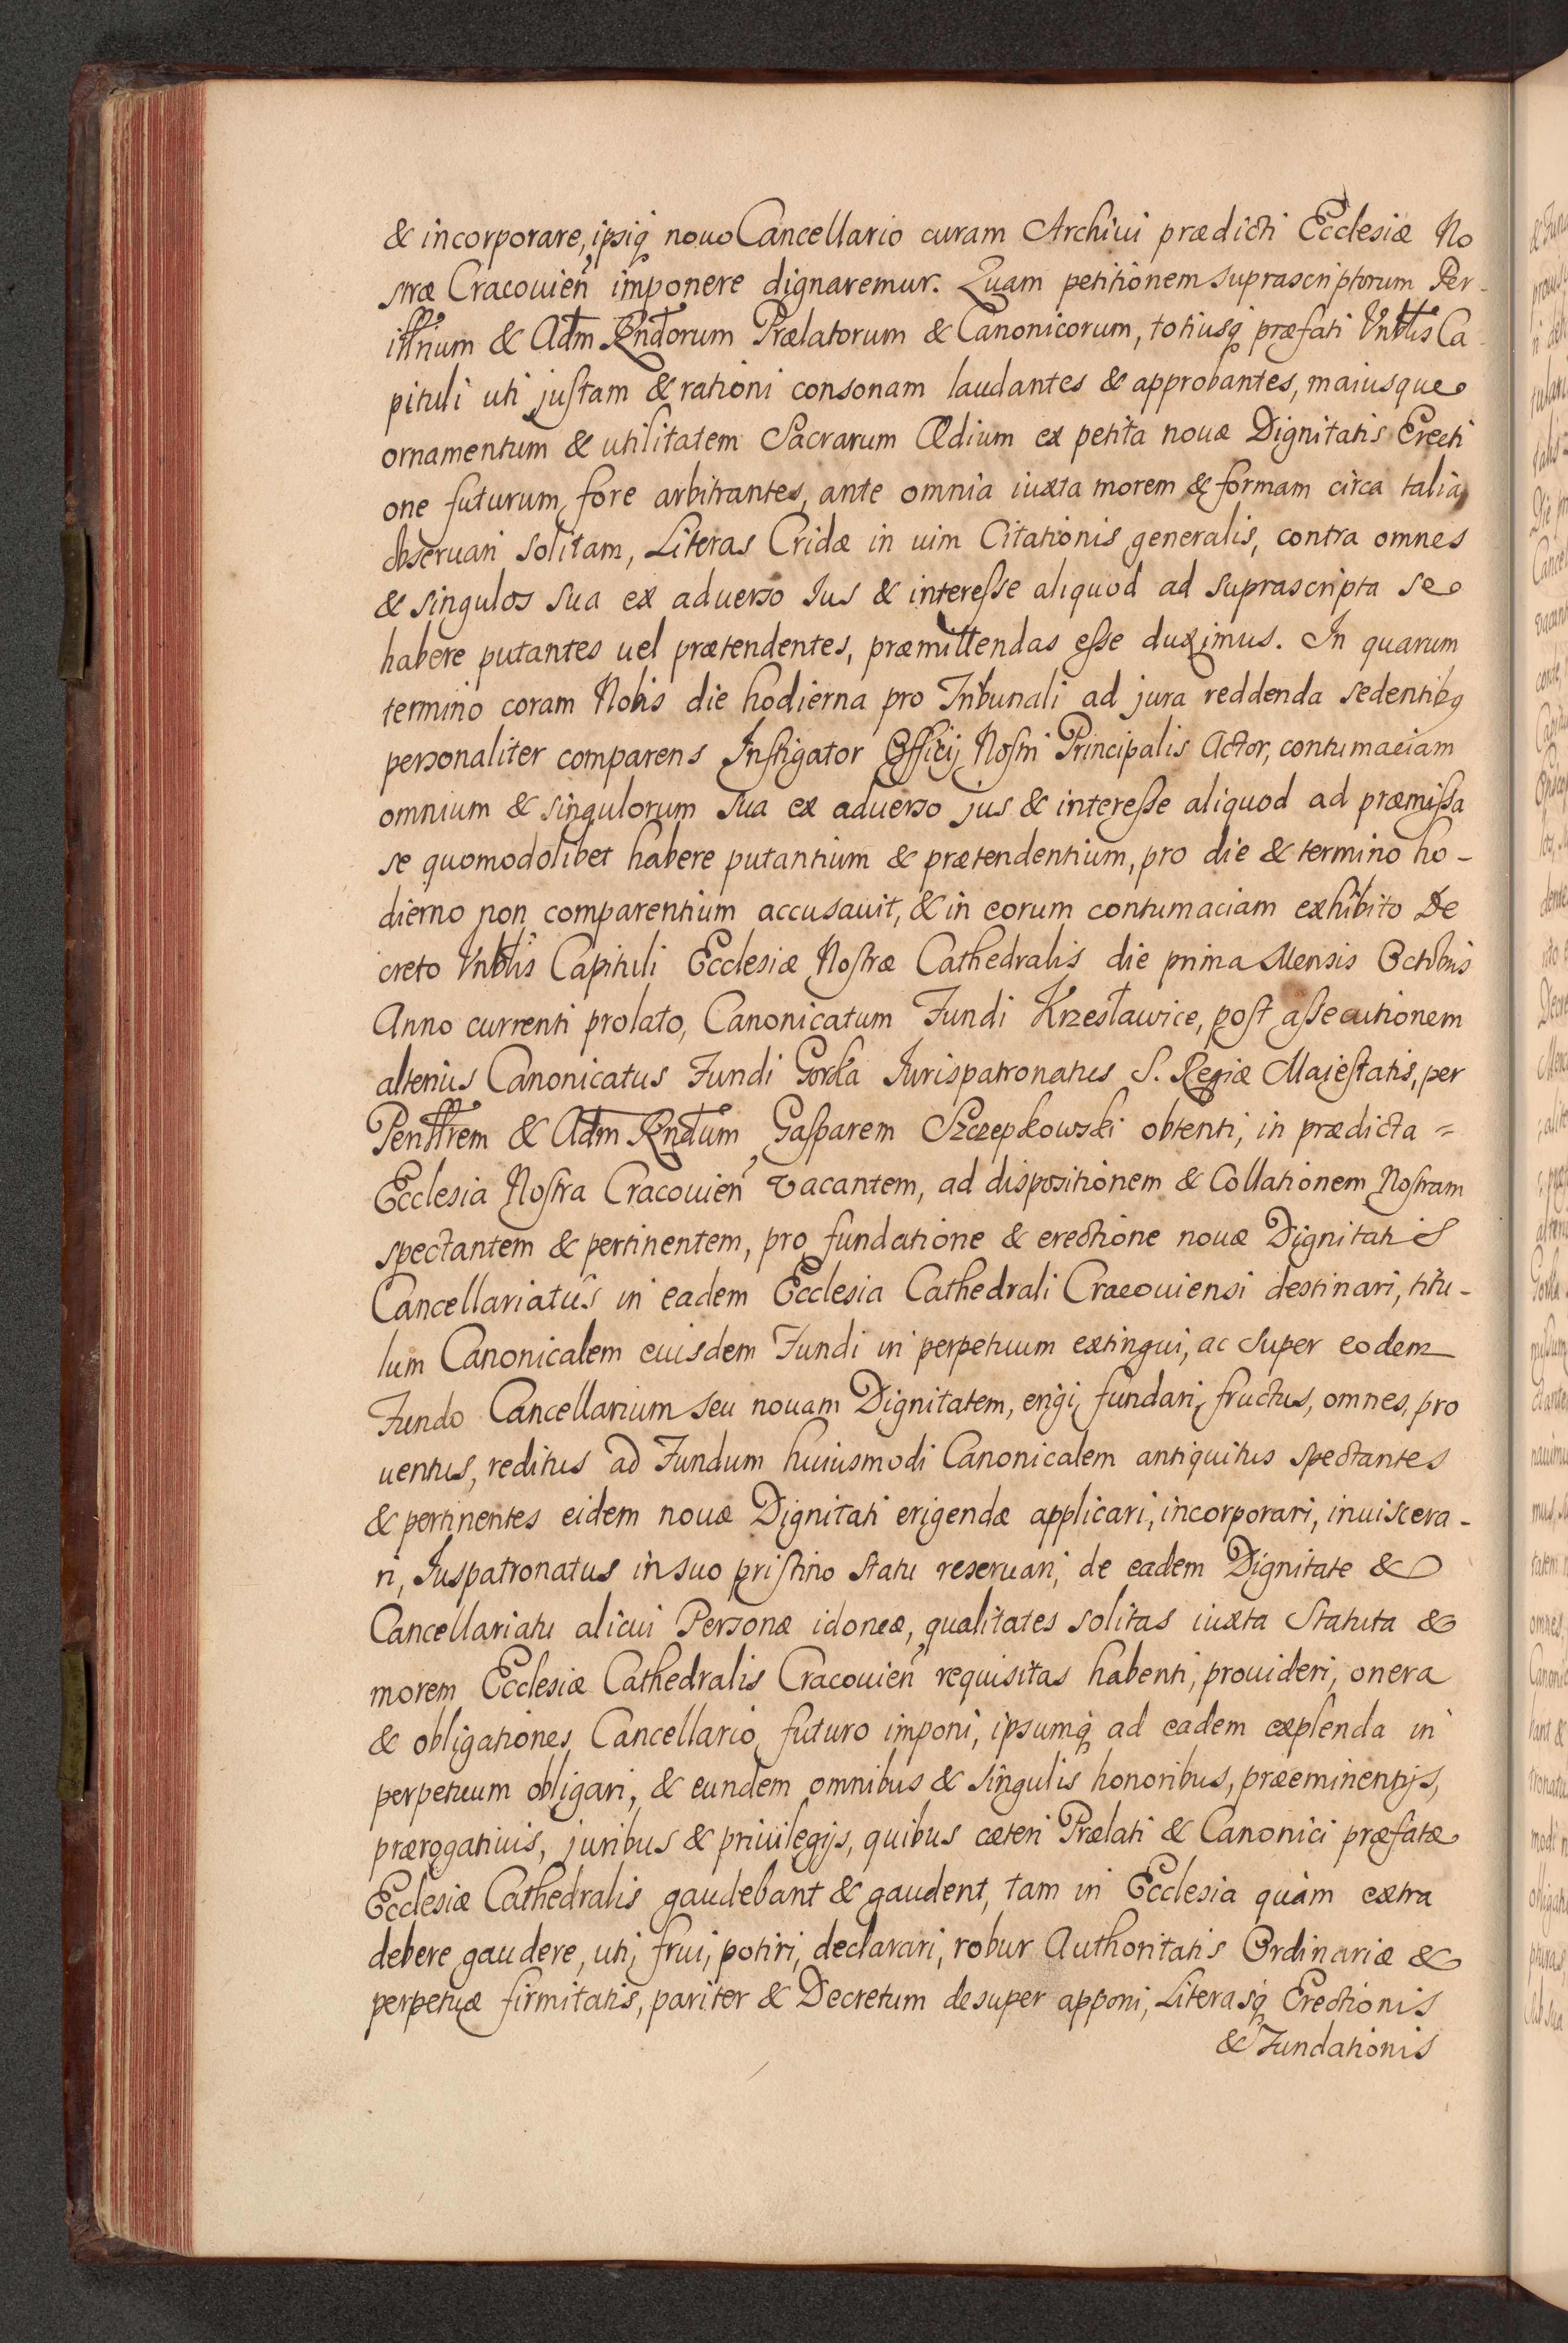 & incorporare, ipsiq; nouo Cancellario curam Archiui prædicti Ecclesiæ No
stræ Cracouien̄ imponere dignaremur. Quam petitionem suprascriptorum Per-
illrium & Adm Rndorum Prælatorum & Canonicorum, totiusq; præfati Vnblis Ca-
pituli uti justam & rationi consonam laudantes & approbantes, maiusque
ornamentum & utilitatem Sacrarum Ædium ex petita nouæ Dignitatis Erecti
one futurum fore arbitrantes, ante omnia iuxta morem & formam circa talia
obseruari solitam, Literas Cridæ in uim Citationis generalis, contra omnes
& singulos sua ex aduerso Ius & interesse aliquod ad suprascripta se
habere putantes uel prætendentes, præmittendas esse duximus. In quarum
termino coram Nobis die hodierna pro Tribunali ad jura reddenda sedentibq
personaliter comparens Instigator Officij Nostri Principalis Actor, contumaciam
omnium & singulorum sua ex aduerso jus & interesse aliquod ad præmissa
se quomodolibet habere putantium & prætendentium, pro die & termino ho-
dierno non comparentium accusauit, & in eorum contumaciam exhibito De
creto Vnblis Capituli Ecclesiæ Nostræ Cathedralis die prima Mensis Octobris
Anno currenti prolato, Canonicatum Fundi Krzesławice, post assecutionem
alterius Canonicatus Fundi Gorka Iurispatronatus S. Regiæ Maiestatis, per
Perillrem & Adm Rndum Gasparem Szczepkowski obtenti, in prædicta =
Ecclesia Nostra Cracouien̄ vacantem, ad dispositionem & Collationem Nostram
spectantem & pertinentem, pro fundatione & erectione nouæ Dignitatis
Cancellariatûs in eadem Ecclesia Cathedrali Cracouiensi destinari, titu-
lum Canonicalem euisdem Fundi in perpetuum extingui, ac super eodem
Fundo Cancellarium seu nouam Dignitatem, erigi, fundari, fructus, omnes, pro
uentus, reditus ad Fundum huiusmodi Canonicalem antiquitus spectantes
& pertinentes eidem nouæ Dignitati erigendæ applicari, incorporari, inuiscera-
ri, Iuspatronatus in suo pristino statu reseruari, de eadem Dignitate &
Cancellariatu alicui Personæ idoneæ, qualitates solitas iuxta Statuta &
morem Ecclesiæ Cathedralis Cracouien̄ requisitas habenti, prouideri, onera
& obligationes Cancellario futuro imponi, ipsumq; ad eadem explenda in
perpetuum obligari, & eundem omnibus & singulis honoribus, præeminentijs,
prærogatiuis, juribus & priuilegijs, quibus cæteri Prælati & Canonici præfatæ
Ecclesiæ Cathedralis gaudebant & gaudent, tam in Ecclesia quàm extra
debere gaudere, uti, frui, potiri, declarari, robur Authoritatis Ordinariæ &
perpetuæ firmitatis, pariter & Decretum desuper apponi, Literasq; Erectionis
& Fundationis